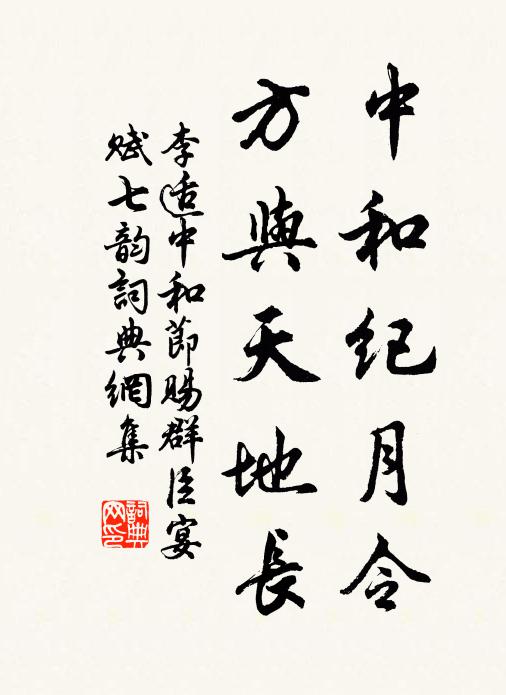 中和纪月令
方與天地長
李适中和節賜群臣宴
賦七韵詞典網集
詞典网印